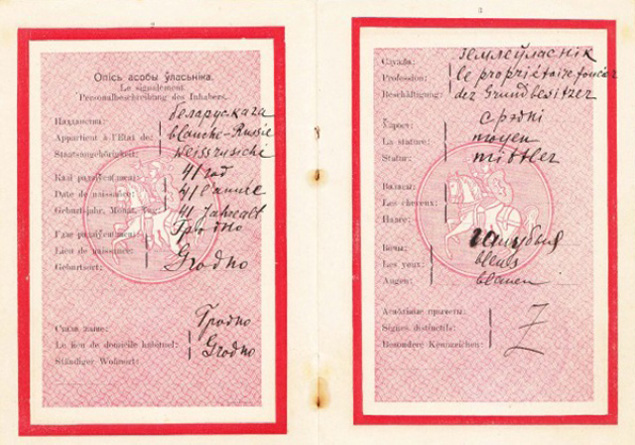 2
Опісь асобы ўласьніка.
Le signalement
Personalbeschreibung des Inhabers.
беларуская
Appartient à l'Etat de: blanche-Russie
Staatsangehörigkeit: weissrusichi
41 год
Date de naissance: 41 l'année
Geburtsjahr, Monat, Tag: 41 Jahrealt
Гродно
Lieu de naissance:
Geburtsort: Grodno
Гродно
Le lieu de domicile habituel: Grodno
Ständiger Wohnort:
3
Служба: землеўласнік
Profession: le propriétaire foncier
Beschäftigung: der Grundbesitzer
Хараст: срэдні
La stature: moyen
Statur: mittler
Валасы:
Les cheveux:
Haare:
Вочы: галубыя
Les yeux: bleus
Augen: blauen
Signes distinctifs: Z
Besondere Kennzeichen: